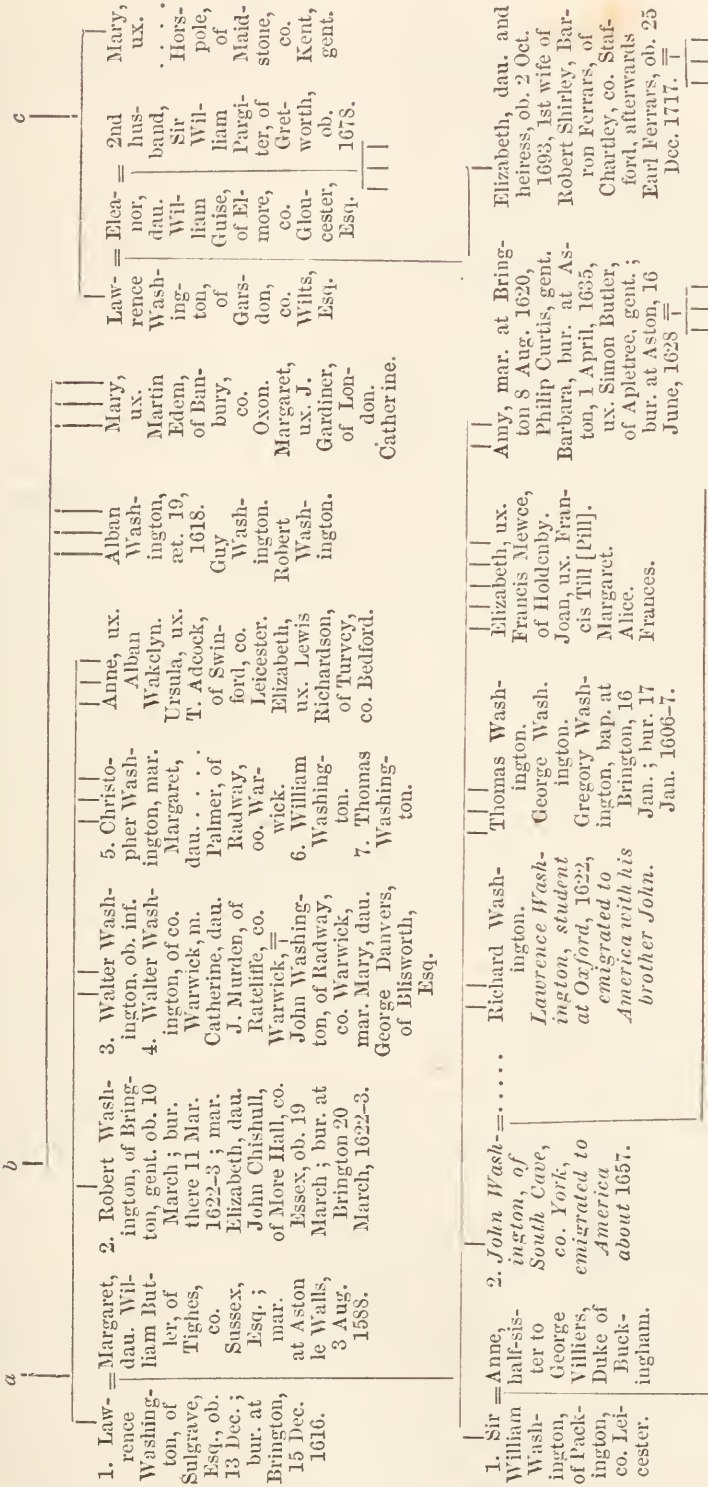 a
b
c
1. Law-
rence
Washing-
ton, of
Sulgrave,
Esq., ob.
13 Dec.;
bur. at
Brington,
15 Dec.
1616.
= Margaret,
dau. Wil-
liam But-
ler, of
Tighes,
co.
Sussex,
Esq.;
mar.
at Aston
le Walls,
3 Aug.
1588.
2. Robert Wash-
ington, of Bring-
ton, gent. ob. 10
March; bur.
there 11 Mar.
1622-3; mar.
Elizabeth, dau.
John Chishull,
of More Hall, co.
Essex, ob. 19
March; bur. at
Brington 20
March, 1622-3.
3. Walter Wash-
ington, ob. inf.
4. Walter Wash-
ington, of co.
Warwick, m.
Catherine, dau.
J. Murden, of
Ratcliffe, co.
Warwick, =
John Washing-
ton, of Radway,
co. Warwick,
mar. Mary, dau.
George Danvers,
of Blisworth,
Esq.
5. Christo-
pher Wash-
ington, mar.
Margaret,
dau. . . . .
Palmer, of
Radway,
oo. War-
wick.
6. William
Washing-
ton.
7. Thomas
Washing-
ton.
Anne, ux.
Alban
Wakelyn.
Ursula, ux.
T. Adcock,
of Swin-
ford, co.
Leicester.
Elizabeth,
ux. Lewis
Richardson,
of Turvey,
co. Bedford.
Alban
Wash-
ington,
æt. 19,
1618.
Guy
Wash-
ington.
Robert
Wash-
ington.
Mary,
ux.
Martin
Edem,
of Ban-
bury,
co.
Oxon.
Margaret,
ux. J.
Gardiner,
of Lon-
don.
Catherine.
Law-
rence
Wash-
ing-
ton,
of
Gars-
don,
co.
Wilts,
Esq.
= Elea-
nor,
dau.
Wil-
liam
Guise,
of El-
more,
co.
Glou-
cester,
Esq.
= 2nd
hus-
band,
Sir
Wil-
liam
Pargi-
ter, of
Gret-
worth,
ob.
1678.
Mary,
ux.
. . . .
Hors-
pole,
of
Maid-
stone,
co.
Kent,
gent.
1. Sir
William
Wash-
ington,
of Pack-
ington,
co. Lei-
cester.
= Anne,
half-sis-
ter to
George
Villiers,
Duke of
Buck-
ingham.
2. John Wash-
ington, of
South Cave,
co. York,
emigrated to
America
about 1657.
= . . . . .
Richard Wash-
ington.
Lawrence Wash-
ington, student
at Oxford, 1622,
emigrated to
America with his
brother John.
Thomas Wash-
ington.
George Wash.
ington.
Gregory Wash-
ington, bap. at
Brington, 16
Jan.; bur. 17
Jan. 1606-7.
Elizabeth, ux.
Francis Mewce,
of Holdenby.
Joan, ux. Fran-
cis Till [Pill].
Margaret.
Alice.
Frances.
Amy, mar. at Bring-
ton 8 Aug. 1620,
Philip Curtis, gent.
Barbara, bur. at As-
ton, 1 April, 1635,
ux. Simon Butler,
of Apletree, gent.;
bur. at Aston, 16
June, 1628 =
Elizabeth, dau. and
heiress, ob. 2 Oct.
1693, 1st wife of
Robert Shirley, Bar-
ron Ferrars, of
Chartley, co. Staf-
ford, afterwards
Earl Ferrars, ob. 25
Dec. 1717. =